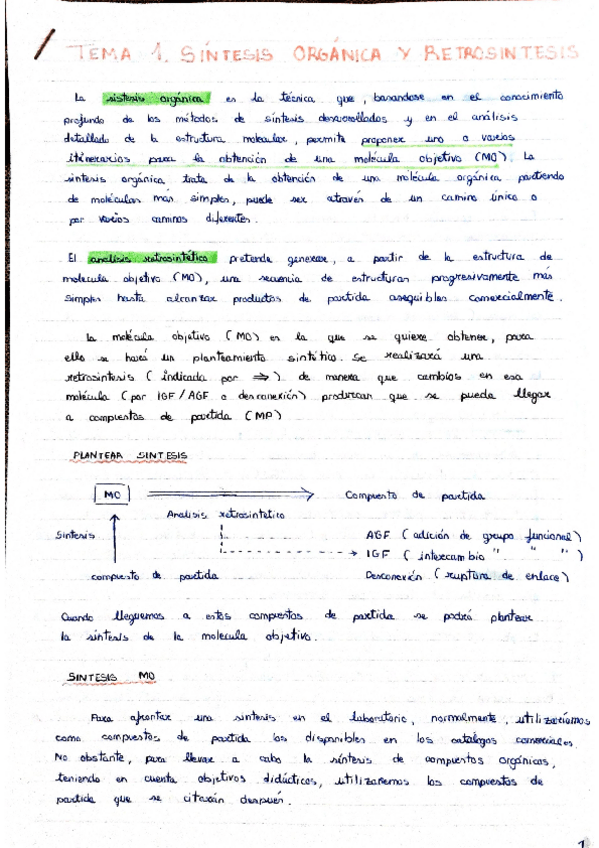 TEMA 1. SÍNTESIS ORGÁNICA Y RETROSINTESIS
La sistesis orgánica es la técnica que, basandose en el conocimiento
profundo de los métodos de síntesis desarrollados y en el análisis
detallado de la estructura molecular, permite proponer uno o varios
itinerarios para la obtención de una molécula objetivo (MO). La
síntesis orgánica trata de la obtención de una molécula orgánica partiendo
de moléculas más simples, puede ser através de un camino único o
por varios caminos diferentes.
El análisis retrosintético pretende generar, a partir de la estructura de
molecula objetivo (MO), una secuencia de estructuras progresivamente más
simples hasta alcanzar productos de partida asequibles comercialmente.
La molécula objetivo (MO) es la que se quiere obtener, para
ello se hará un planteamiento sintético. Se realizará una
retrosintesis (indicada por ⇒) de manera que cambios en esa
molécula (por IGF/AGF o desconexión) produzcan que se pueda llegar
a compuestos de partida (MP)
PLANTEAR SINTESIS
MO Compuesto de partida
Analisis retrosintetico
Sintesis AGF (adición de grupo funcional)
IGF (intercambio " " ")
compuesto de partida Desconexión (ruptura de enlace)
Cuando lleguemos a estos compuestos de partida se podrá plantear
la síntesis de la molecula objetivo.
SINTESIS MO
Para afrontar una sintesis en el laboratorio, normalmente, utilizaríamos
como compuestos de partida los disponibles en los catálogos comerciales.
No obstante, para llevar a cabo la síntesis de compuestos orgánicos,
teniendo en cuenta objetivos didácticos, utilizaremos los compuestos de
partida que se citarán después.
1